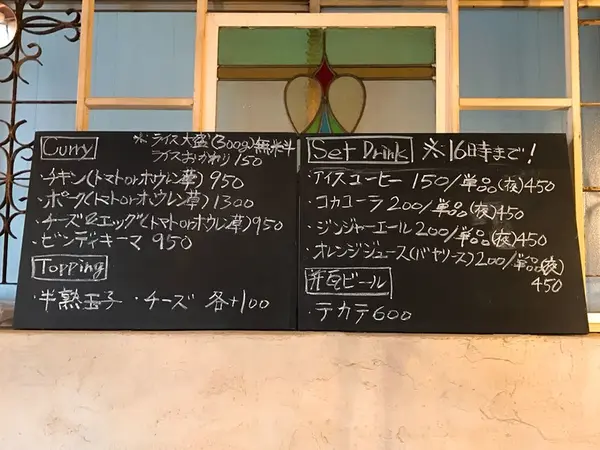 Curry
※ライス大盛(300g)無料
ライスおかわり150
・チキン(トマトorホウレン草)950
・ポーク(トマトorホウレン草)1300
・チーズ&エッグ(トマトorホウレン草)950
・ビンディキーマ 950
Topping
・半熟玉子 ・チーズ 各+100
Set Drink ※16時まで!
・アイスコーヒー 150/単品(夜)450
・コカコーラ 200/単品(夜)450
・ジンジャーエール 200/単品(夜)450
・オレンジジュース(バヤリース)200/単品(夜)
450
瓶ビール
・テカテ600